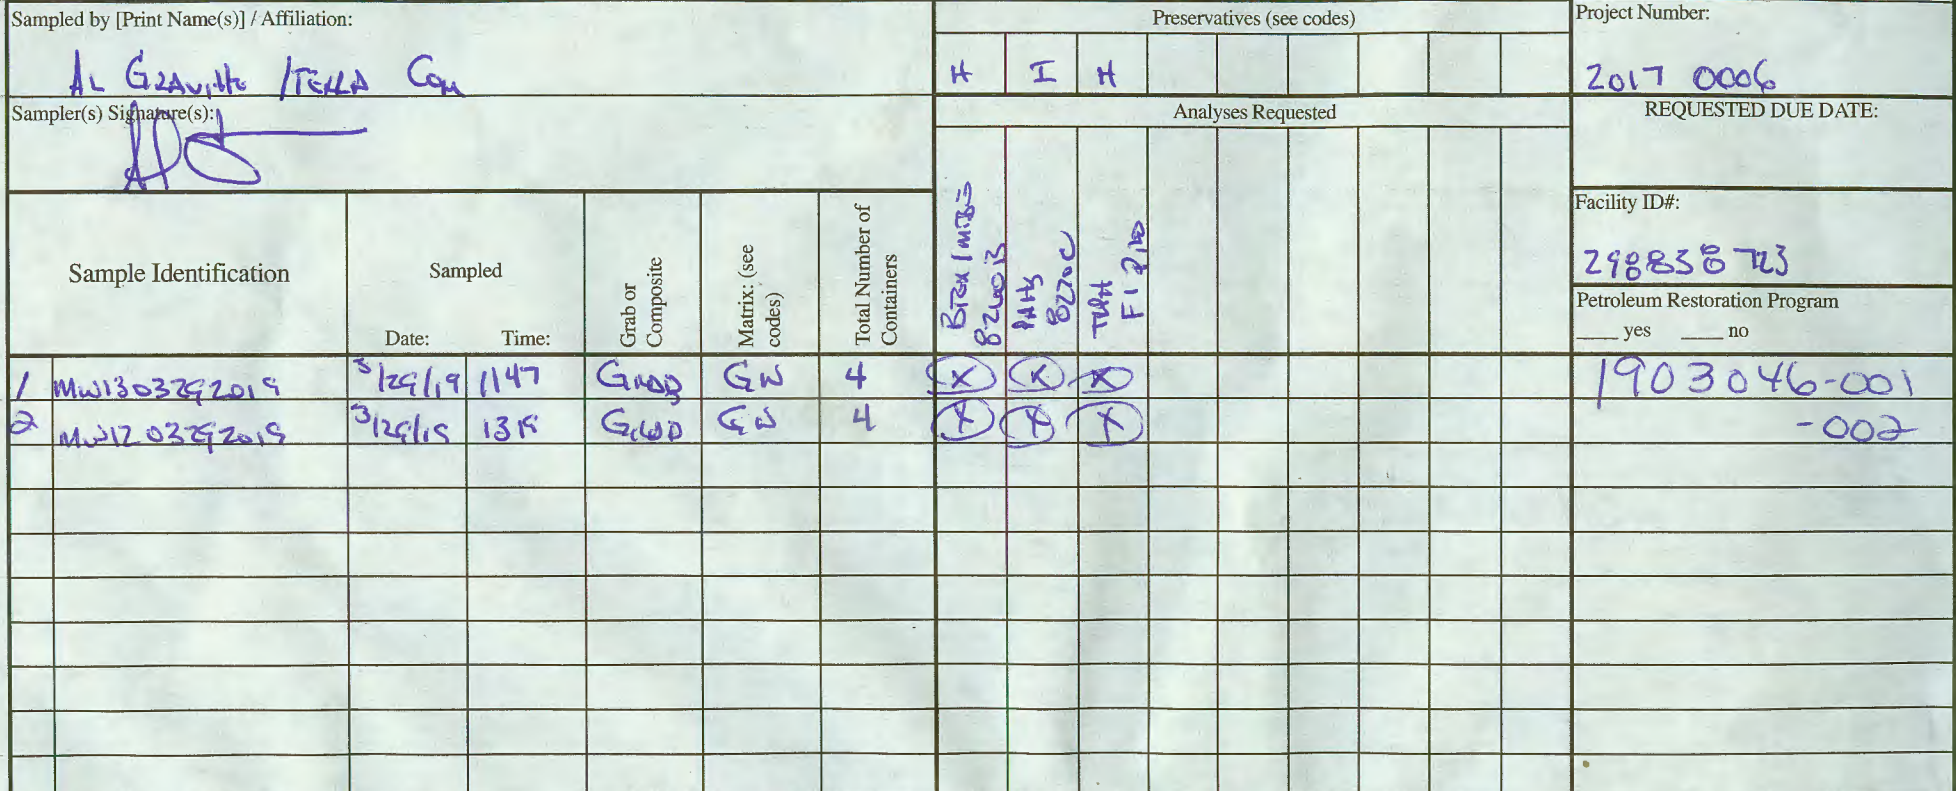 Sampled by [Print Name(s)] / Affiliation:
AL / TERRA Com
Sampler(s) Signature(s):
Preservatives (see codes)
H I H
Project Number:
2017 0006
Analyses Requested
REQUESTED DUE DATE:
Facility ID#:
298838723
Petroleum Restoration Program
___ yes ___ no
Sample Identification
Sampled
Date: Time:
Grab or
Composite
Matrix: (see
codes)
Total Number of
Containers
BTEX / MTBE
8260B
PAHs
8270C
TRPH
1 MW1303292019 3/29/19 1147 GRAB GW 4 X X X 1903046-001
2 MW1203292019 3/29/19 1319 GRAB GW 4 X X X -002